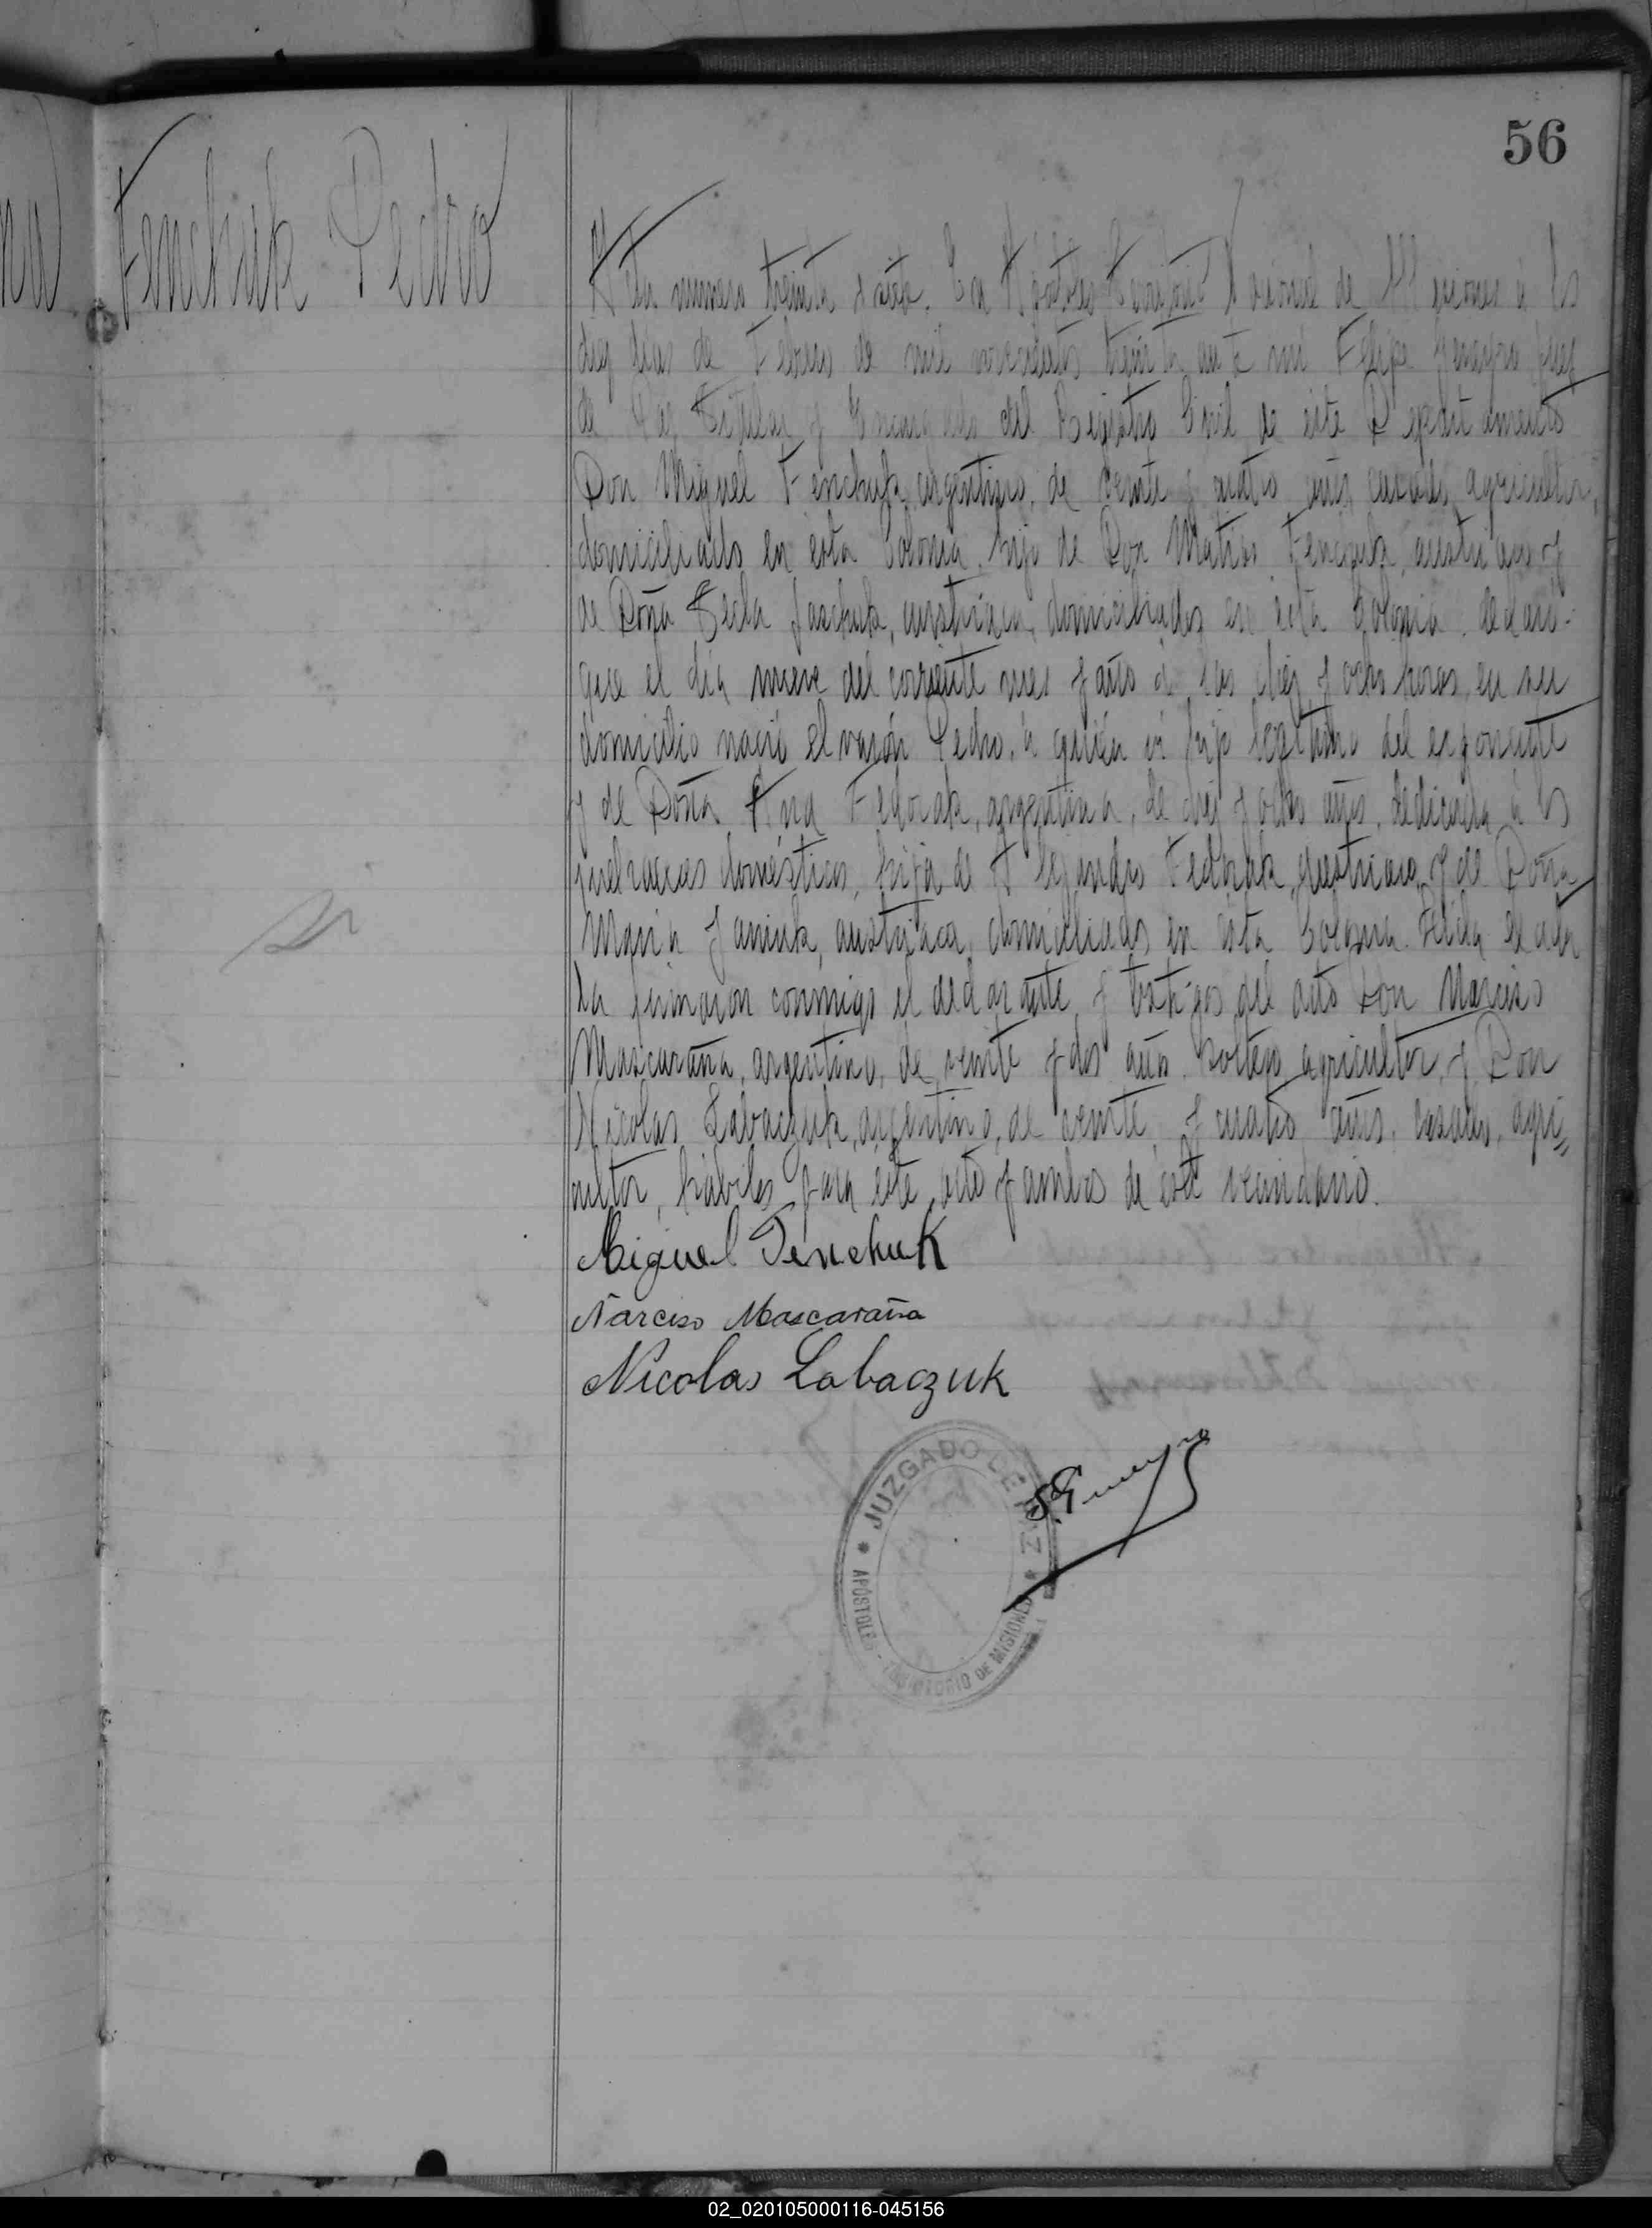 56
Fenchuk Pedro
Acta numero treinta y siete. En Apóstoles Territorio Nacional de Misiones á los
diez dias de Febrero de mil novecientos treinta ante mi Felipe Juez
de Paz Titular y Encargado del Registro Civil de este Departamento
Don Miguel Fenchuk, argentino, de veinte y cuatro años casado, agricultor,
domiciliado en esta Colonia, hijo de Don Matias Fenczuk, austriaco y
de Doña Tecla Jaschuk, austriaca, domiciliados en esta Colonia declaró:
que el día nueve del corriente mes y año á las diez y ocho horas, en su
domicilio nació el varón Pedro, á quién vi hijo legítimo del exponente
y de Doña Ana Fedorak, argentina, de diez y ocho años, dedicada á los
quehaceres domésticos, hija de Alejandro Fedorak, austriaco y de Doña
Maria austriaca, domiciliados en esta Colonia. Leida el acta
la firmaron conmigo el declarante y testigos del acto Don Narciso
Mascaraña, argentino, de veinte y dos años soltero agricultor, y Don
Nicolas Labaczuk, argentino, de veinte y cuatro años, casado, agri=
cultor, hábiles para este acto y ambos de este vecindario.
Miguel Fenchuk
Narciso Mascaraña
Nicolas Labaczuk
JUZGADO DE PAZ
APOSTOLES - TERRITORIO DE MISIONES
02_020105000116-045156